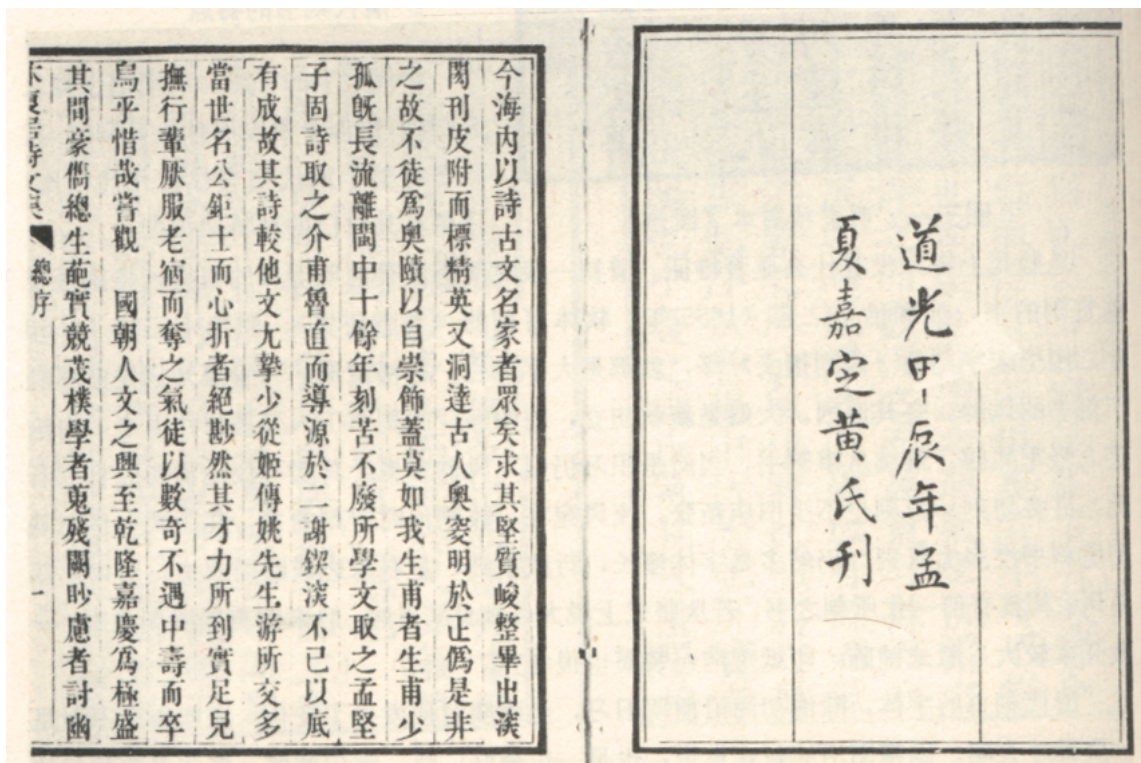 道光甲辰年孟
夏嘉定黃氏刋
今海內以詩古文名家者眾矣求其堅質峻整畢出淡
閎刊皮附而標精英又洞達古人奧窔明於正僞是非
之故不徒爲奧賾以自崇飾蓋莫如我生甫者生甫少
孤旣長流離閩中十餘年刻苦不廢所學文取之孟堅
子固詩取之介甫魯直而導源於二謝鍥淡不已以底
有成故其詩較他文尢摯少從姬傳姚先生游所交多
當世名公鉅士而心折者絕尠然其才力所到實足兒
撫行輩厭服老宿而奪之氣徒以數奇不遇中壽而卒
烏乎惜哉嘗觀 國朝人文之興至乾隆嘉慶爲極盛
其間豪儁總生葩實競茂樸學者蒐殘闕眇慮者討幽
總序 一